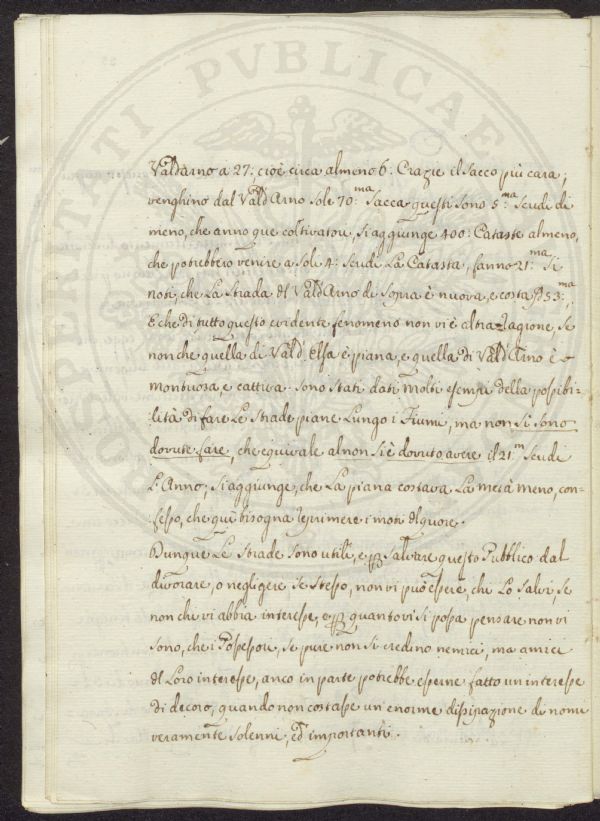 PROSPERITATI PVBLICAE
ValdArno a 27: cioè circa almeno 6: Crazie il Sacco più cara;
venghino dal ValdArno Sole 70:ma Sacca questi sono 5:ma Scudi di
meno, che anno que coltivatori, si aggiunge 400: Cataste almeno,
che potrebbero venire a Soli 4: Scudi La Catasta, fanno 21:ma Si
noti, che La Strada del ValdArno di Sopra è nuova, e costa 53:ma;
E che di tutto questo evidente fenomeno non vi è altra ragione, Se
non che quella di Vald'Elsa è piana, e quella di ValdArno è
montuosa, e cattiva. Sono stati dati molti esempi della possibi-
lità di fare Le Strade piane Lungo i Fiumi, ma non si sono
dovute fare, che equivale al non si è dovuto avere il 21:m Scudi
L'Anno, Si aggiunge, che La piana costava La metà meno, con-
fesso, che qui bisogna reprimere i moti del quore.
Dunque Le Strade sono utili, e p Salvare questo Pubblico dal
divorare, o negligere Se Stesso, non vi può essere, chi Lo Salvi, Se
non chi vi abbia interesse, e p quanto vi si possa pensare non vi
sono, che i Possessori, Se pure non si credino nemici, ma amici
del Loro interesse, anco in parte potrebbe esserne fatto un interesse
di decoro, quando non costasse un'enorme dissipazione di nomi
veramente Solenni, ed importanti.